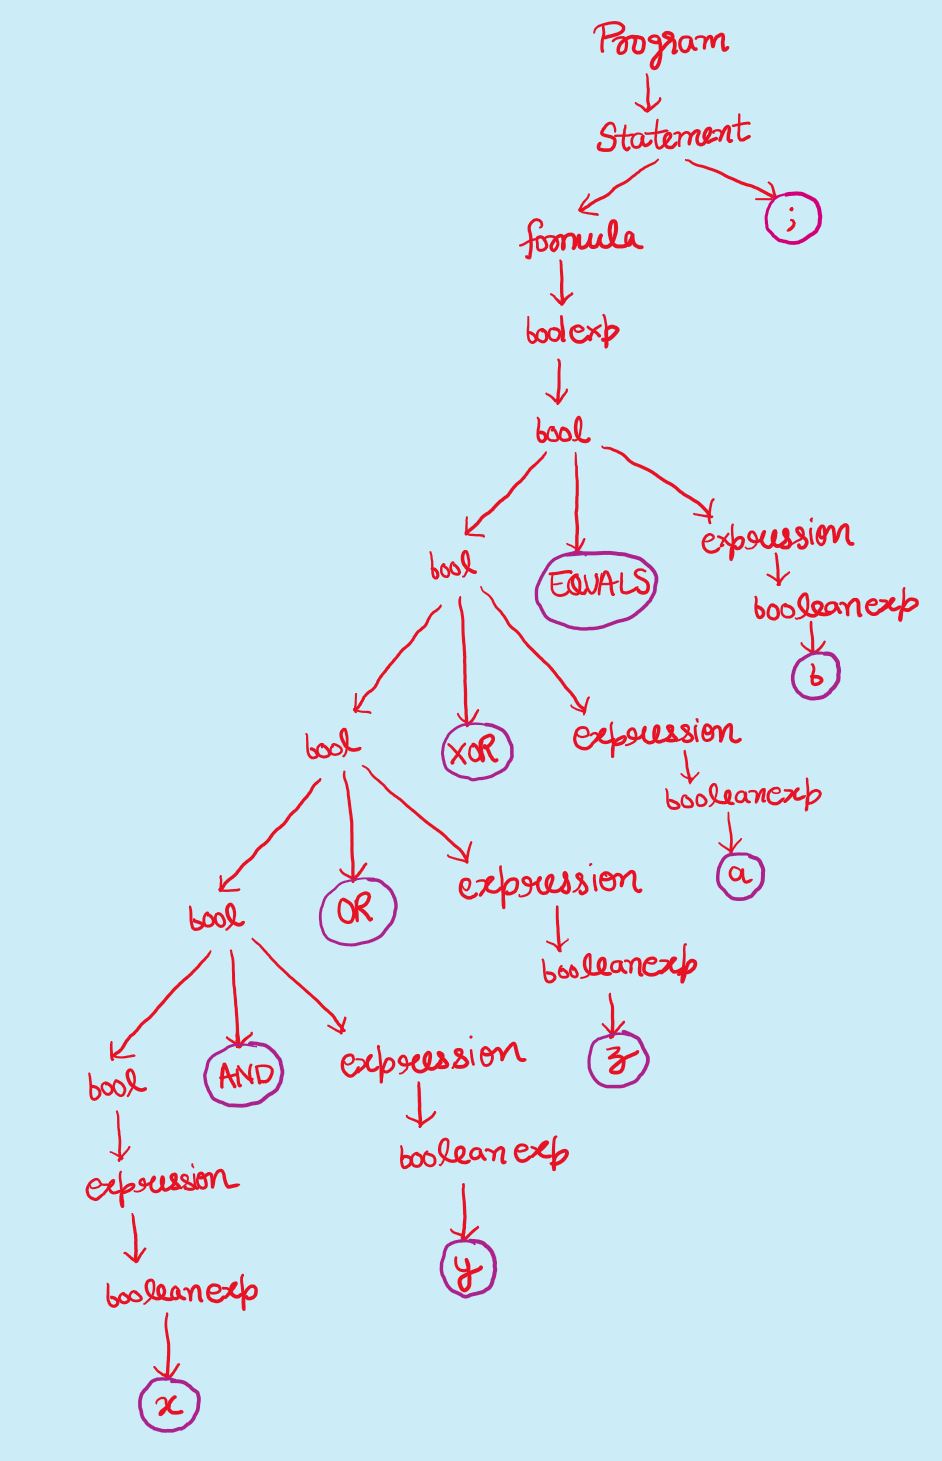 Program
Statement
formula
;
boolexp
bool
bool
EQUALS
expression
booleanexp
b
bool
XOR
expression
booleanexp
a
bool
OR
expression
booleanexp
z
bool
AND
expression
booleanexp
y
expression
booleanexp
x